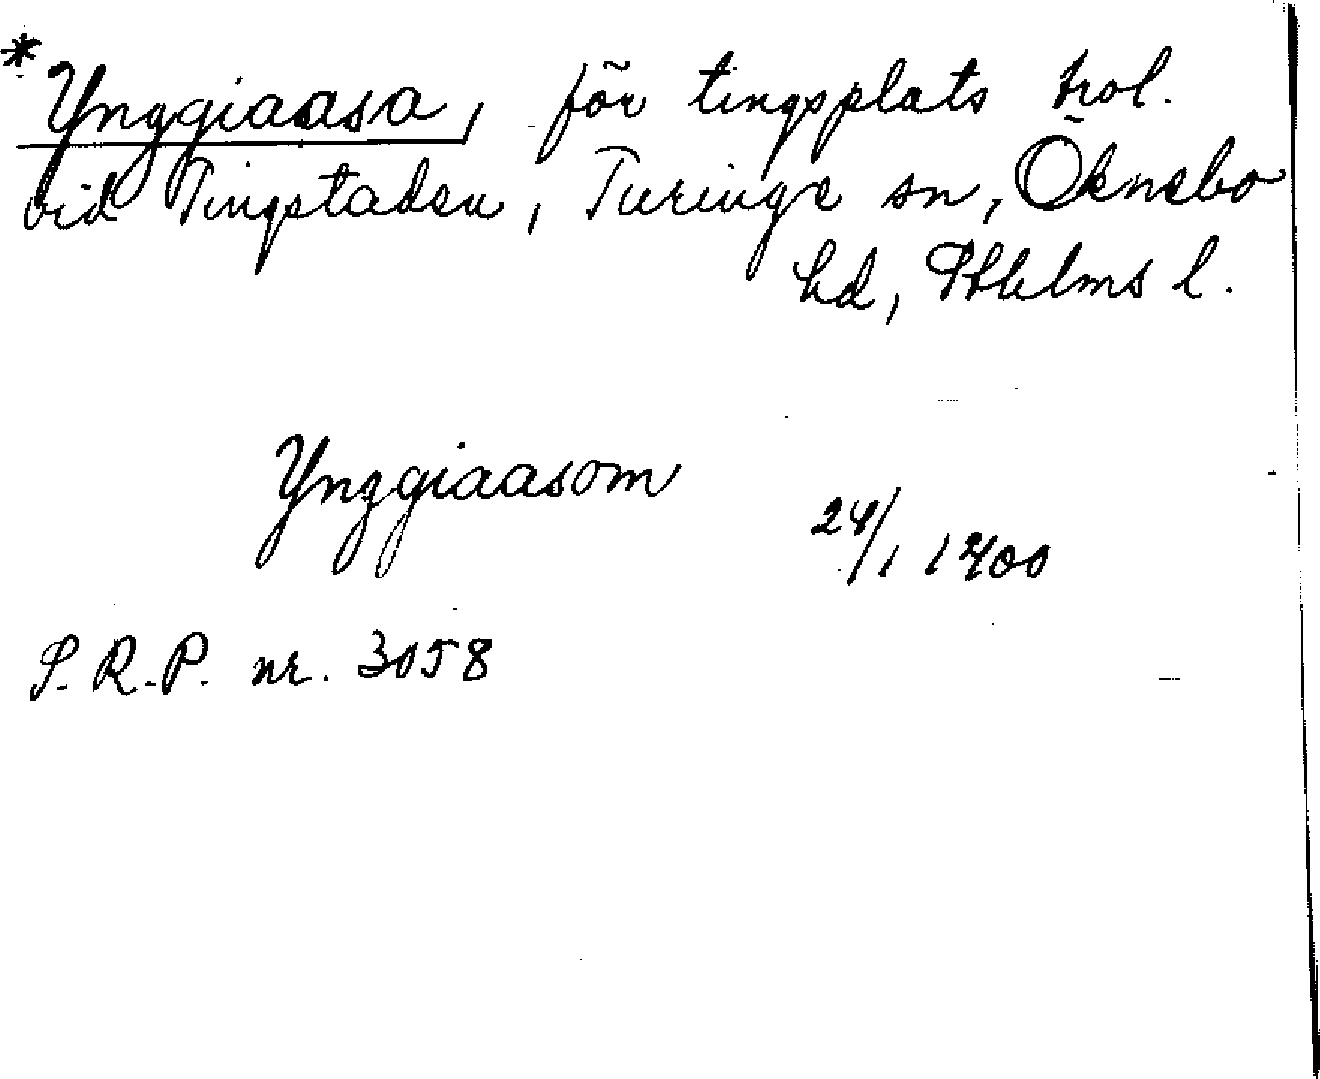 *Ynggiaasa, för tingsplats trol.
vid Tingstaden, Turinge sn, Öknebo
hd, Sthlms l.
Ynggiaasom
24/1 1400
S.R.P. nr. 3058